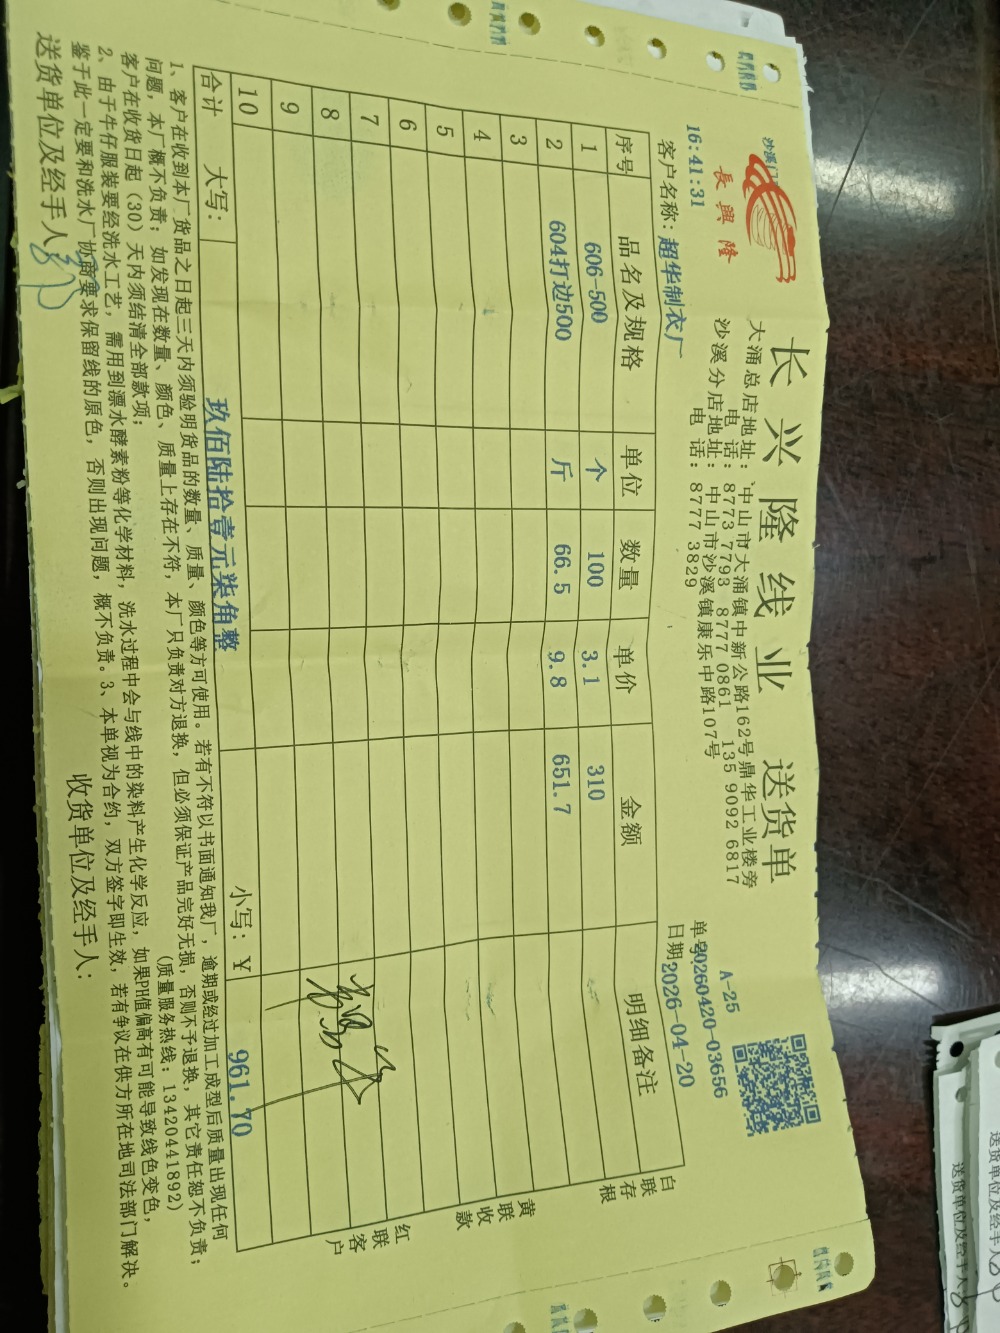 長興隆
长兴隆线业 送货单
大涌总店地址：中山市大涌镇中新公路162号鼎华工业楼旁
电 话：8773 7793 8777 0861 135 9092 6817
沙溪分店地址：中山市沙溪镇康乐中路107号
电 话：8777 3829
A-25
16:41:31
单号 20260420-03656
客户名称：超华制衣厂
日期 2026-04-20
序号 品名及规格 单位 数量 单价 金额 明细备注
1 606-500 个 100 3.1 310
2 604打边500 斤 66.5 9.8 651.7
3
4
5
6
7
8
9
10
合计 大写：玖佰陆拾壹元柒角整 小写：¥ 961.70
白联存根
黄联收款
红联客户
1、客户在收到本厂货品之日起三天内须验明货品的数量、质量、颜色等方可使用。若有不符以书面通知我厂，逾期或经过加工成型后质量出现任何
问题，本厂概不负责；如发现在数量、颜色、质量上存在不符，本厂只负责对方退换，但必须保证产品完好无损，否则不予退换，其它责任恕不负责；
客户在收货日起（30）天内须结清全部款项；
(质量服务热线：13420441892)
2、由于牛仔服装要经洗水工艺，需用到漂水酵素粉等化学材料，洗水过程中会与线中的染料产生化学反应，如果PH值偏高有可能导致线色变色，
鉴于此一定要和洗水厂协商要求保留线的原色，否则出现问题，概不负责。3、本单视为合约，双方签字即生效，若有争议在供方所在地司法部门解决。
送货单位及经手人：
收货单位及经手人：
送货单位及经手人
送货单位及经手人